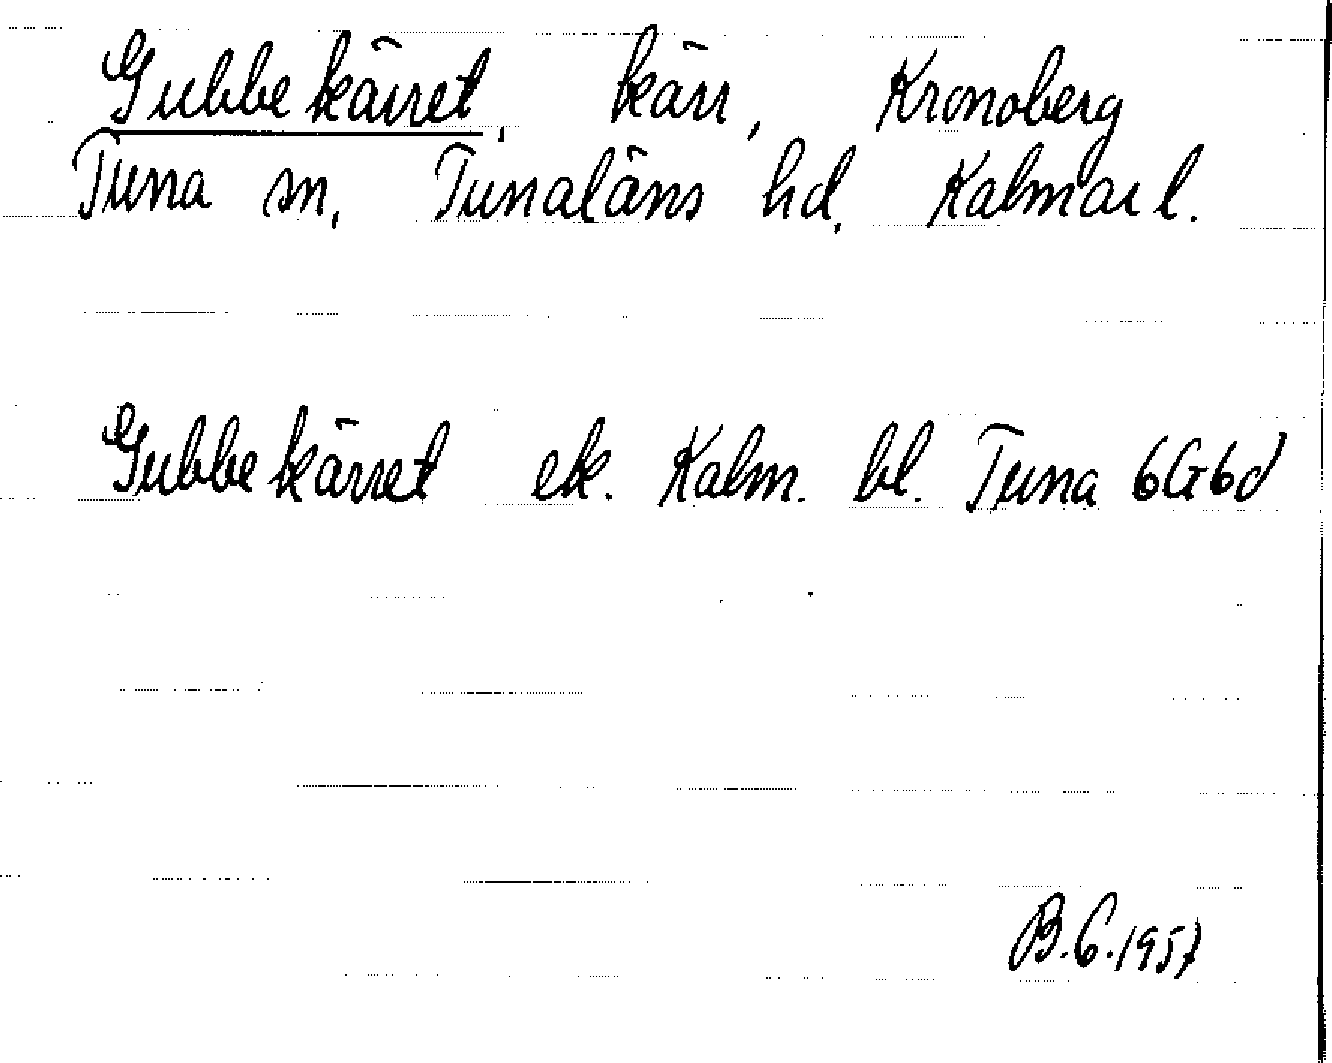 Gubbekärret, kärr, Kronoberg
Tuna sn, Tunaläns hd, Kalmar l.
Gubbekärret ek. Kalm. bl. Tuna 6G6d
B.C. 1957